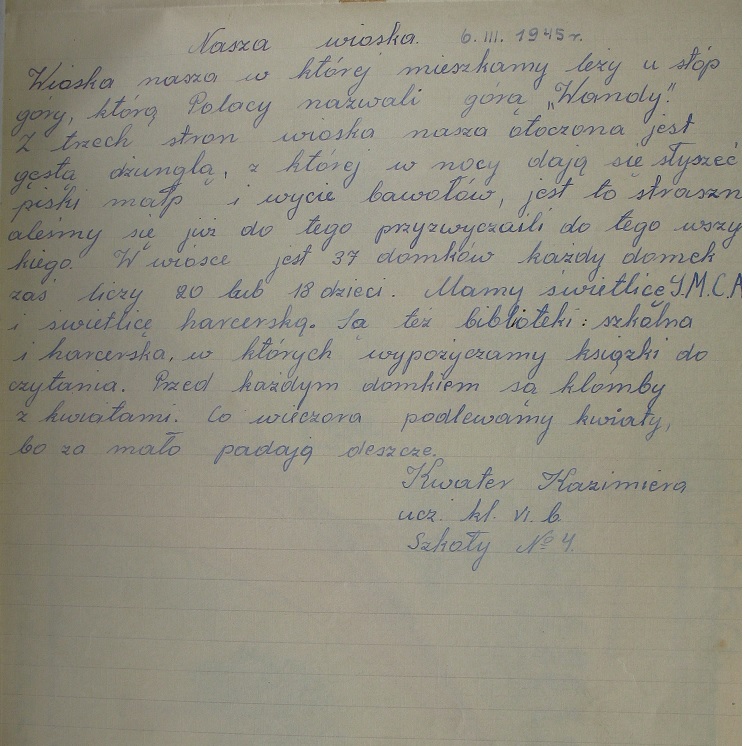 Nasza wioska. 6. III. 1945 r.
Wioska nasza w której mieszkamy leży u stóp
góry, którą Polacy nazwali górą „Wandy".
Z trzech stron wioska nasza otoczona jest
gęstą dżunglą, z której w nocy dają się słyszeć
piski małp i wycie bawołów, jest to straszn
aleśmy się już do tego przyzwyczaili do tego wszy
kiego. W wiosce jest 37 domków każdy domek
zaś liczy 20 lub 18 dzieci. Mamy świetlicę Y.M.C.A
i świetlicę harcerską. Są też biblioteki: szkolna
i harcerska, w których wypożyczamy książki do
czytania. Przed każdym domkiem są klomby
z kwiatami. Co wieczora podlewamy kwiaty,
bo za mało padają deszcze.
Kwater Kazimiera
ucz. kl. VI. b
Szkoły № 4.